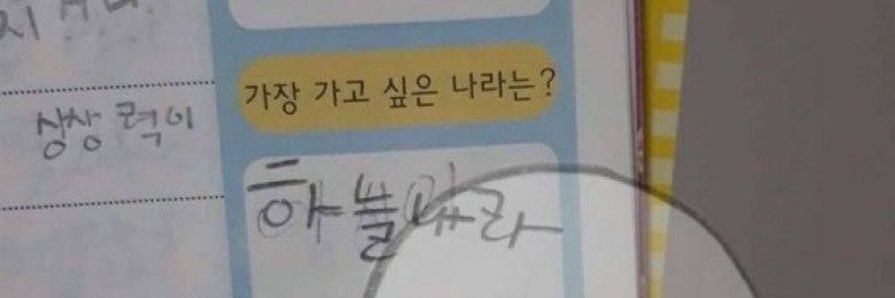 가장 가고 싶은 나라는?
상상력이
하늘나라